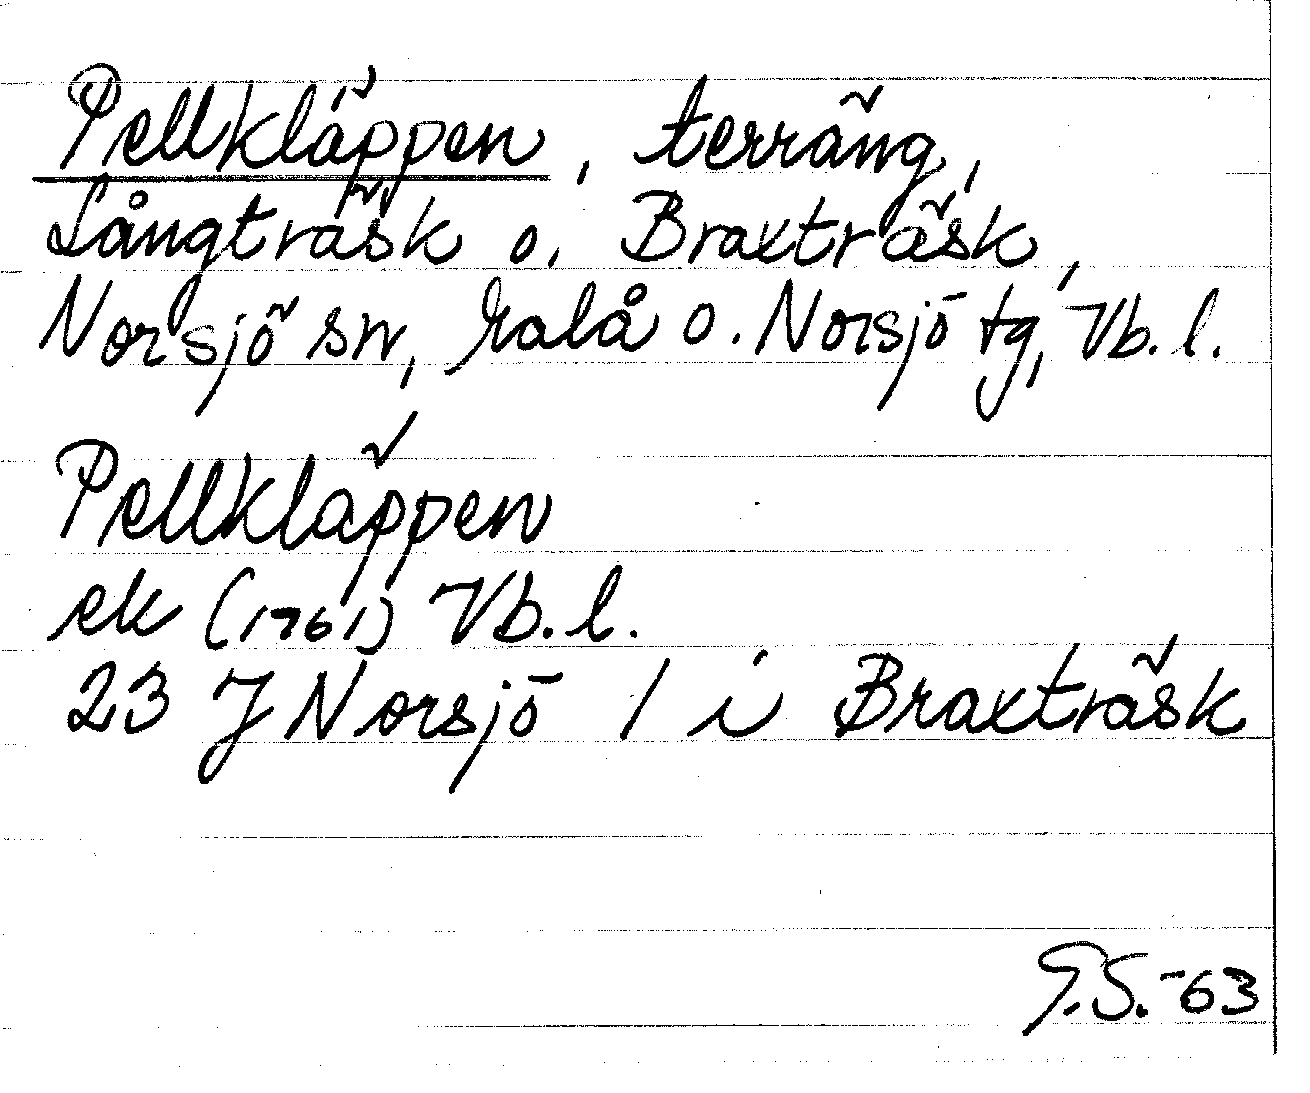 Pellkläppen, terräng,
Långträsk o. Braxträsk,
Norsjö sn, Malå o. Norsjö tg, Vb. l.
Pellkläppen
ek (1961) Vb. l.
23 J Norsjö / i Braxträsk
G.S. -63